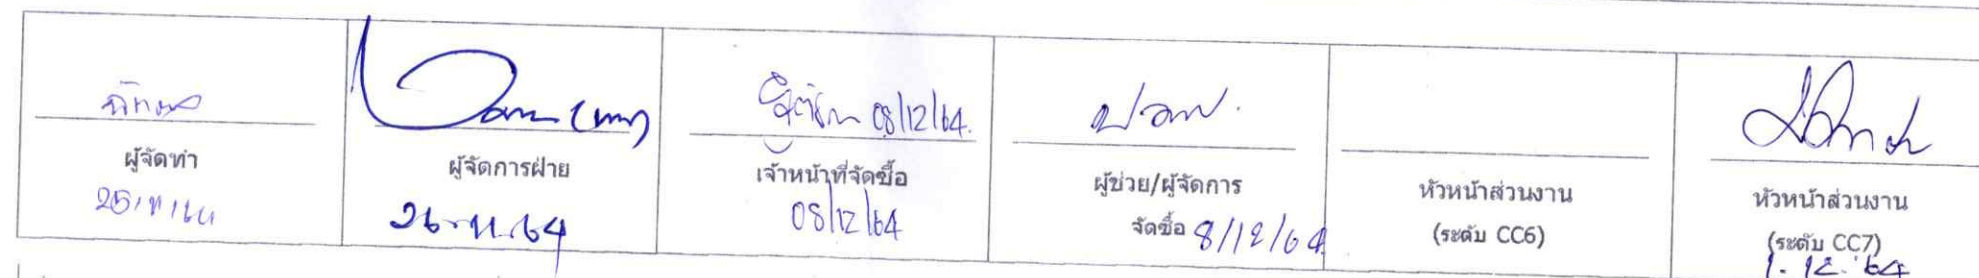 08/12/64.
ผู้จัดทำ
ผู้จัดการฝ่าย
26-11-64
เจ้าหน้าที่จัดซื้อ
08/12/64
ผู้ช่วย/ผู้จัดการ
จัดซื้อ 8/12/64
หัวหน้าส่วนงาน
(ระดับ CC6)
หัวหน้าส่วนงาน
(ระดับ CC7)
1. 12. 64